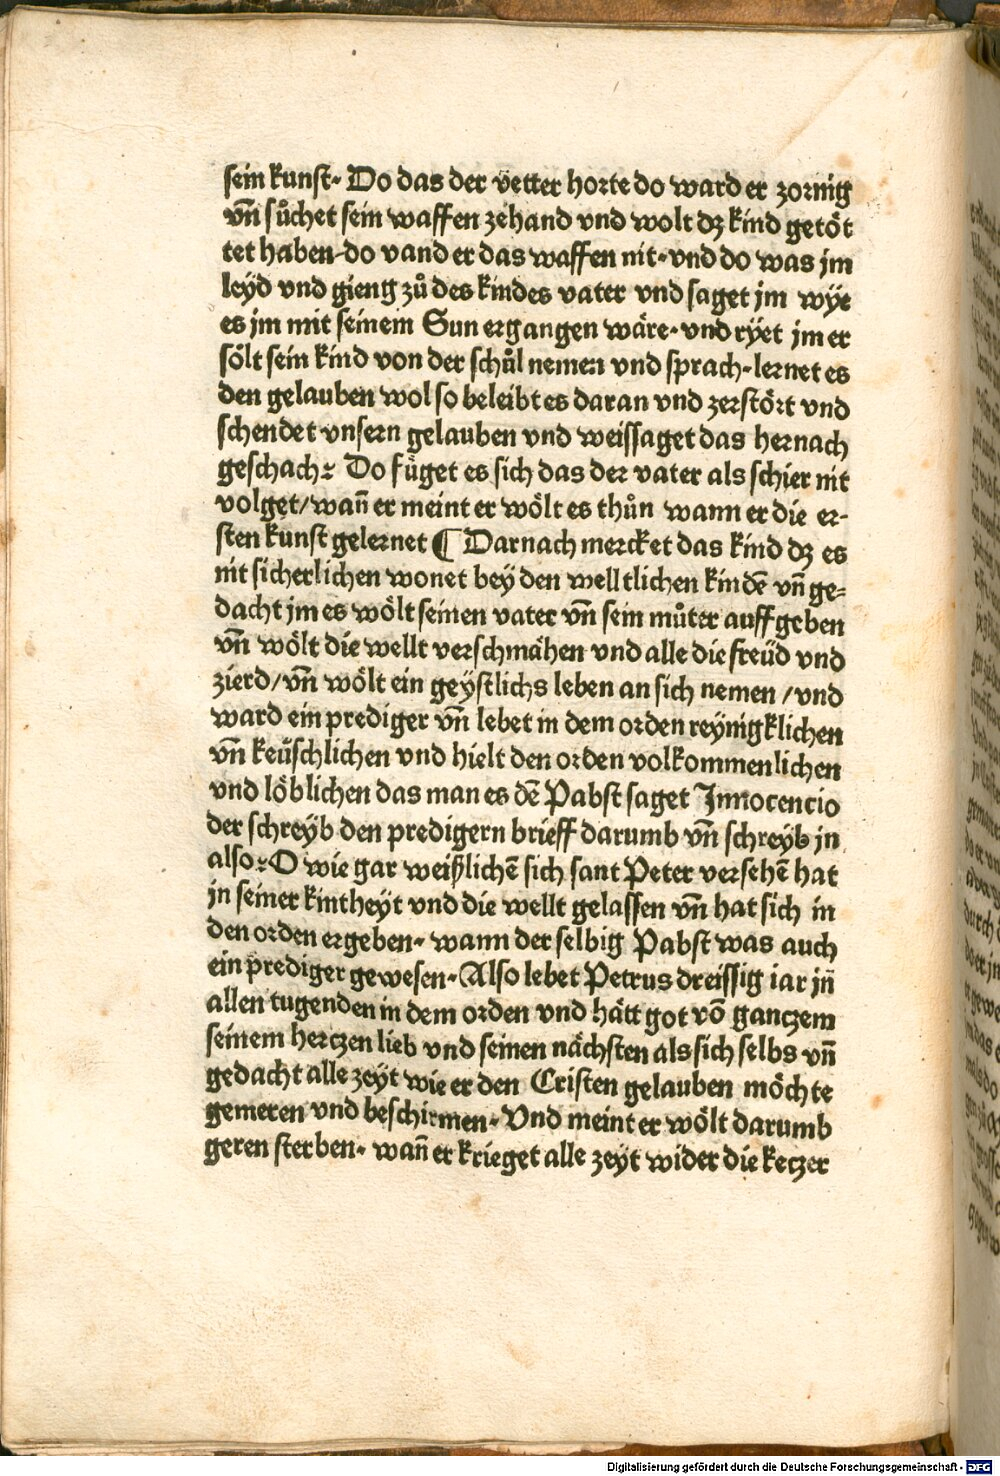 sein kunst· Do das der vetter horte do ward er zornig
vn̄ sůchet sein waffen zehand vnd wolt dz kind getöt
tet haben·do vand er das waffen nit·vnd do was jm
leyd vnd gieng zů des kindes vater vnd saget jm wye
es jm mit seinem Sun ergangen wäre·vnd ryet jm er
sölt sein kind von der schůl nemen vnd sprach·lernet es
den gelauben wol so beleibt es daran vnd zerstört vnd
schendet vnsern gelauben vnd weissaget das hernach
geschach· Do füget es sich das der vater als schier nit
volget/wan̄ er meint er wölt es thůn wann er die er-
sten kunst gelernet ¶ Darnach mercket das kind dz es
nit sicherlichen wonet bey den welltlichen kindē vn̄ ge-
dacht jm es wölt seinen vater vn̄ sein můter auffgeben
vn̄ wölt die wellt verschmähen vnd alle die freüd vnd
zierd/vn̄ wölt ein geystlichs leben an sich nemen /vnd
ward ein prediger vn̄ lebet in dem orden reynigklichen
vn̄ keüschlichen vnd hielt den orden volkommenlichen
vnd löblichen das man es dē Pabst saget Innocencio
der schreyb den predigern brieff darumb vn̄ schreyb jn
also· O wie gar weißlichē sich sant Peter versehē hat
jn seiner kintheyt vnd die wellt gelassen vn̄ hat sich in
den orden ergeben· wann der selbig Pabst was auch
ein prediger gewesen·Also lebet Petrus dreissig iar jn̄
allen tugenden in dem orden vnd hätt got vō ganczem
seinem herczen lieb vnd seinen nächsten als sich selbs vn̄
gedacht alle zeyt wie er den Cristen gelauben möchte
gemeren vnd beschirmen·Vnd meint er wölt darumb
geren sterben· wan̄ er krieget alle zeyt wider die keczer
Digitalisierung gefördert durch die Deutsche Forschungsgemeinschaft - DFG